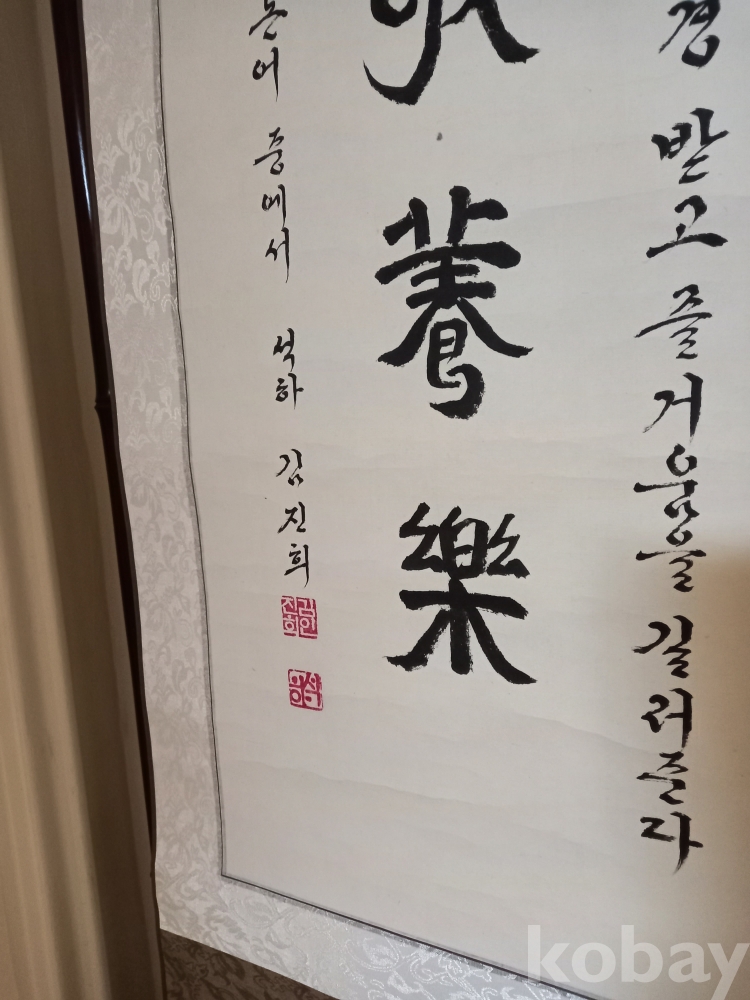 경 받고 즐거움을 길러준다
養樂
논어 중에서 석하 김진희
kobay